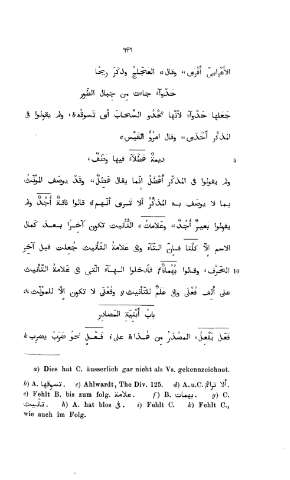 ٦٣٦
الأعراض أقرى » وقال العجّاج وذكر ريحًا
حَدْواء جاءت من جبال الطور
جعلها حدواء لأنها تحدو السحاب أي تسوقه ولم يقولوا في
المذكر أحدى » وقال امرؤ القيس
5 ديمة هطلاء فيها وطف
ولم يقولوا في المذكر أفعل انما يقال هطل » وقد يوصف المؤنث
بما لا يوصف به المذكر ألا ترى أنهم قالوا ناقة أجد ولم
يقولوا بعير أجد » وعلامات التأنيث تكون آخرا بعد كمال
الاسم الا كلتا فان التاء في علامة التأنيث جعلت قبل آخر
10 الحرف وقالوا بهماة فأدخلوا الهاء التي في علامة التأنيث
على ألف فعلى وفى علم للتأنيث وفعلى لا تكون الا للمؤنث
باب أبنية المصادر
فعل يفعل المصدر من هذاء على فعل نحو ضرب يضرب
a) Dies hat C. äusserlich gar nicht als Vs. gekennzeichnet.
b) A. تسوقها. c) Ahlwardt, The Div. 125. d) A.u.C. ألا تراهم
e) Fehlt B. bis zum folg. علامة f) B. بهمات g) C.
تأنيث. h) A. hat blos في. i) Fehlt C. k) Fehlt C.,
wie auch im Folg.